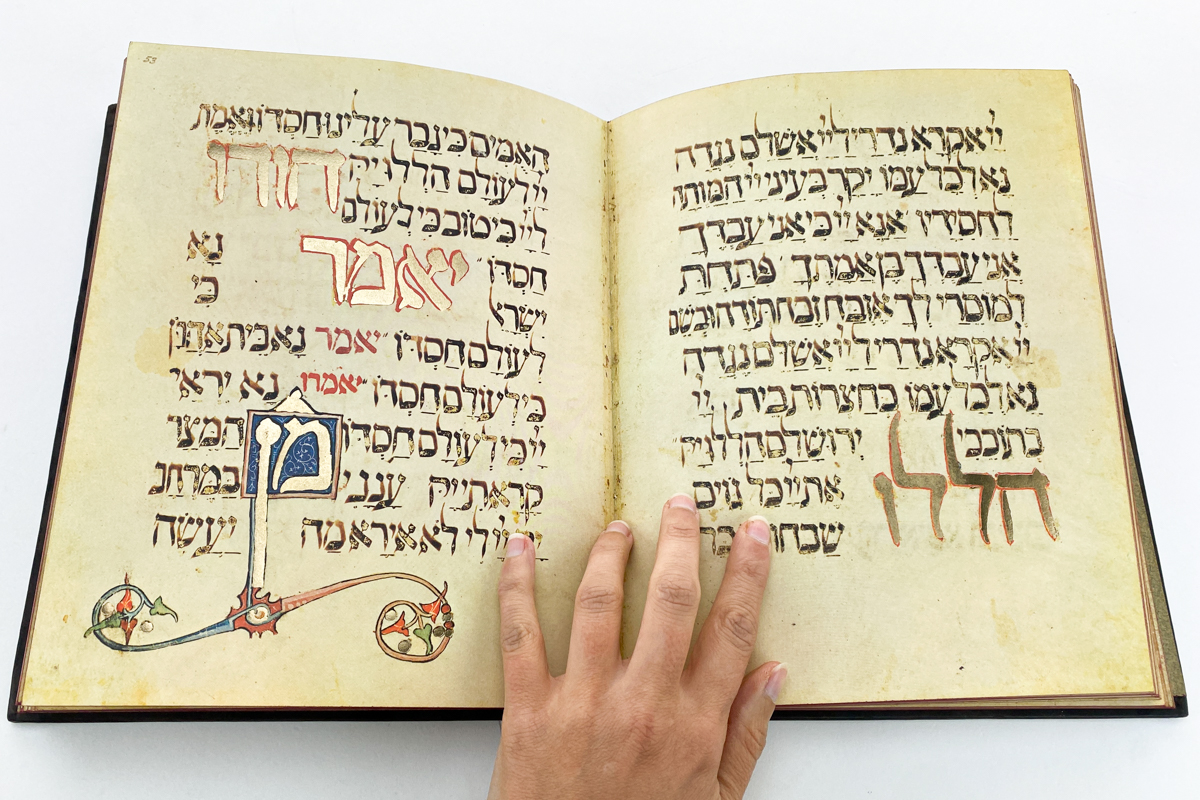 יי אקרא נדרי ליי אשלם נגדה
נא לכל עמו יקר בעיני יי המותה
לחסידיו אנא יי כי אני עבדך
אני עבדך בן אמתך פתחת
למוסרי לך אזבח זבח תודה ובשם
יי אקרא נדרי ליי אשלם נגדה
נא לכל עמו בחצרות בית יי
בתוככי ירושלם הללויה
הללו את יי כל גוים
שבחוהו
53
האמים כי גבר עלינו חסדו ואמת
יי לעולם הללויה הודו
ליי כי טוב כי לעולם
חסדו יאמר נא
ישראל כי
לעולם חסדו יאמר נא בית אהרן
כי לעולם חסדו יאמרו נא יראי
יי כי לעולם חסדו מן המצר
קראתי יה ענני במרחב
לי לא אירא מה יעשה